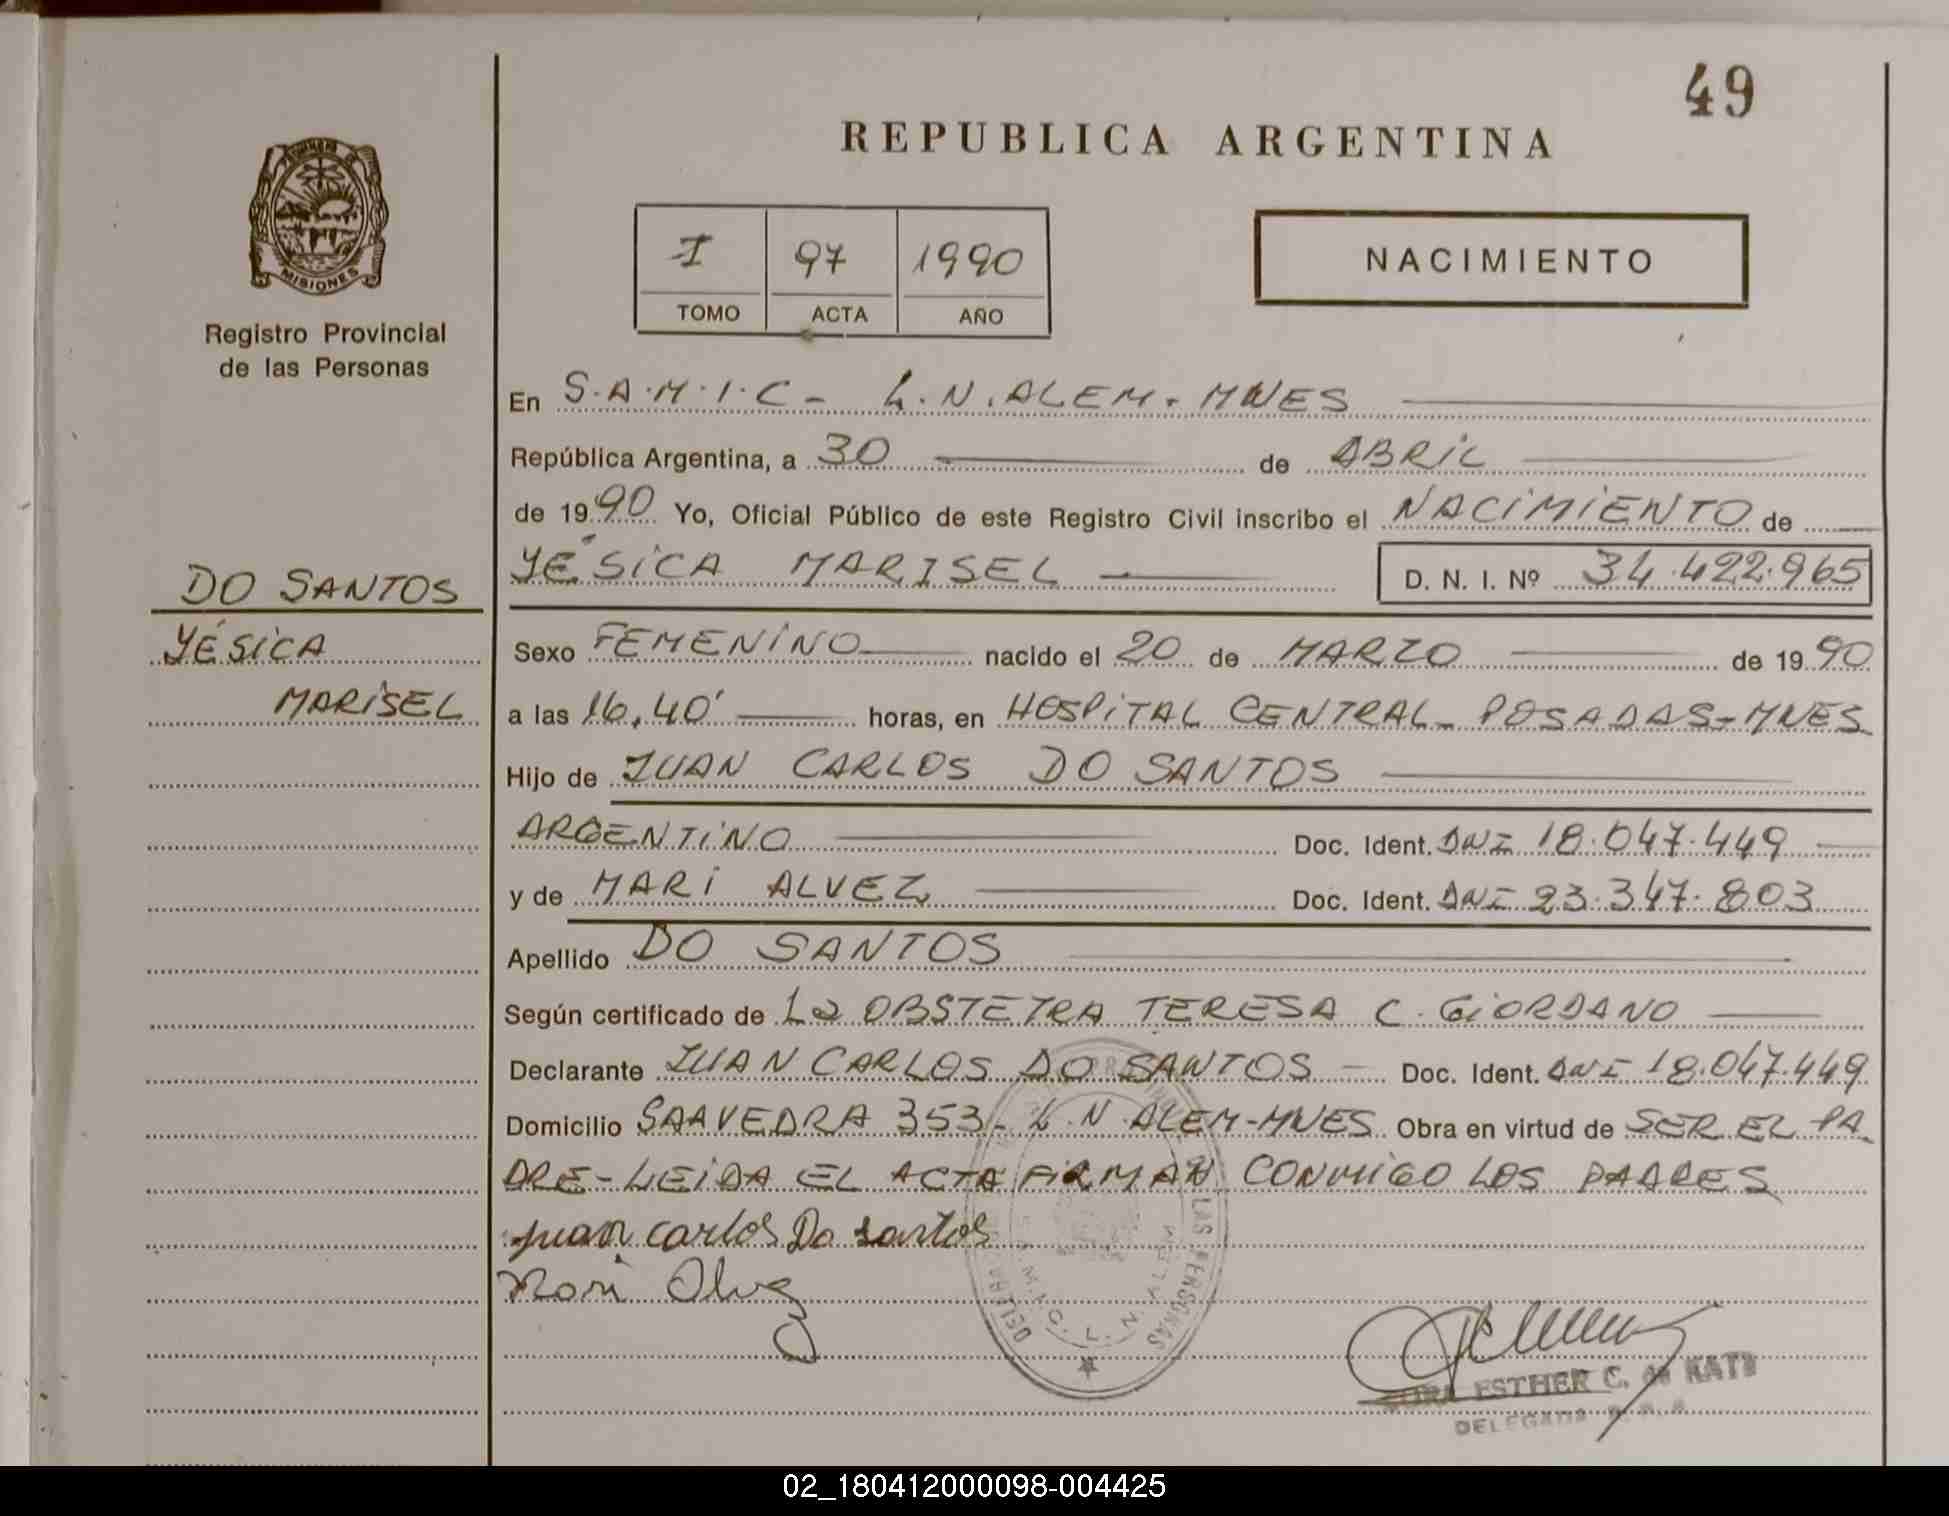 49
REPUBLICA ARGENTINA
MISIONES
Registro Provincial
de las Personas
I 97 1990
TOMO ACTA AÑO
NACIMIENTO
En S.A.M.I.C - L.N. ALEM - MNES
República Argentina, a 30 de ABRIL
de 1990 Yo, Oficial Público de este Registro Civil inscribo el NACIMIENTO de
YÉSICA MARISEL D. N. I. Nº 34.422.965
DO SANTOS
YÉSICA
MARISEL
Sexo FEMENINO nacido el 20 de MARZO de 1990
a las 16,40' horas, en HOSPITAL CENTRAL - POSADAS - MNES
Hijo de JUAN CARLOS DO SANTOS
ARGENTINO Doc. Ident. DNI 18.047.449
y de MARI ALVEZ Doc. Ident. DNI 23.347.803
Apellido DO SANTOS
Según certificado de La OBSTETRA TERESA C. GIORDANO
Declarante JUAN CARLOS DO SANTOS - Doc. Ident. DNI 18.047.449
Domicilio SAAVEDRA 353 - L.N. ALEM - MNES Obra en virtud de SER EL PA
DRE - LEIDA EL ACTA FIRMAN CONMIGO LOS PADRES
juan carlos Do santos
Mari Alvez
LAS PERSONAS
S.A.M.I.C. L. N. ALEM
ESTHER C. de KATZ
DELEGADA R. P. P.
02_180412000098-004425